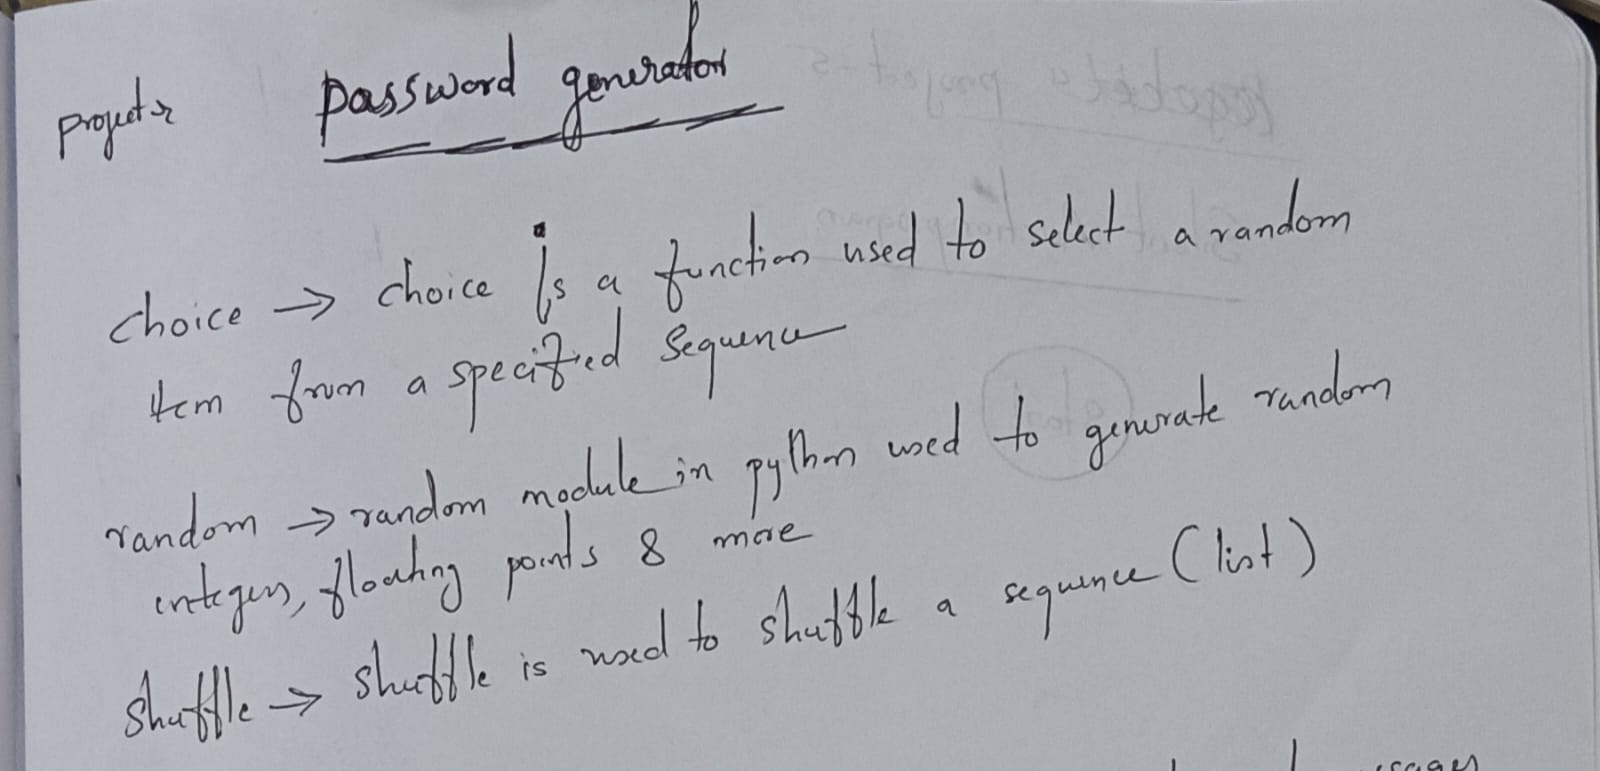 project:- password generator
choice → choice is a function used to select a random
item from a specified sequence
random → random module in python used to generate random
integers, floating points & more
shuffle → shuffle is used to shuffle a sequence (list)